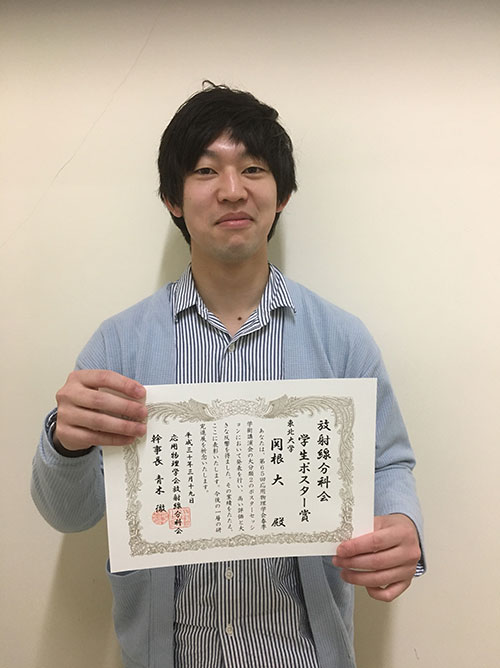 放射線分科会
学生ポスター賞
東北大学
関根 大 殿
あなたは、第65回応用物理学会春季
学術講演会の大分類2のポスターセッシ
ョンにおいて発表を行い、高い評価と大
きな反響を得ました。その業績をたたえ、
ここに表彰いたします。今後の一層の研
究進展を祈念いたします。
平成三十年三月十九日
応用物理学会放射線分科会
幹事長 青木 徹